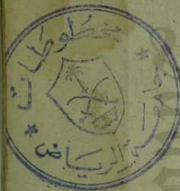 مخطوطات
جامعة الرياض